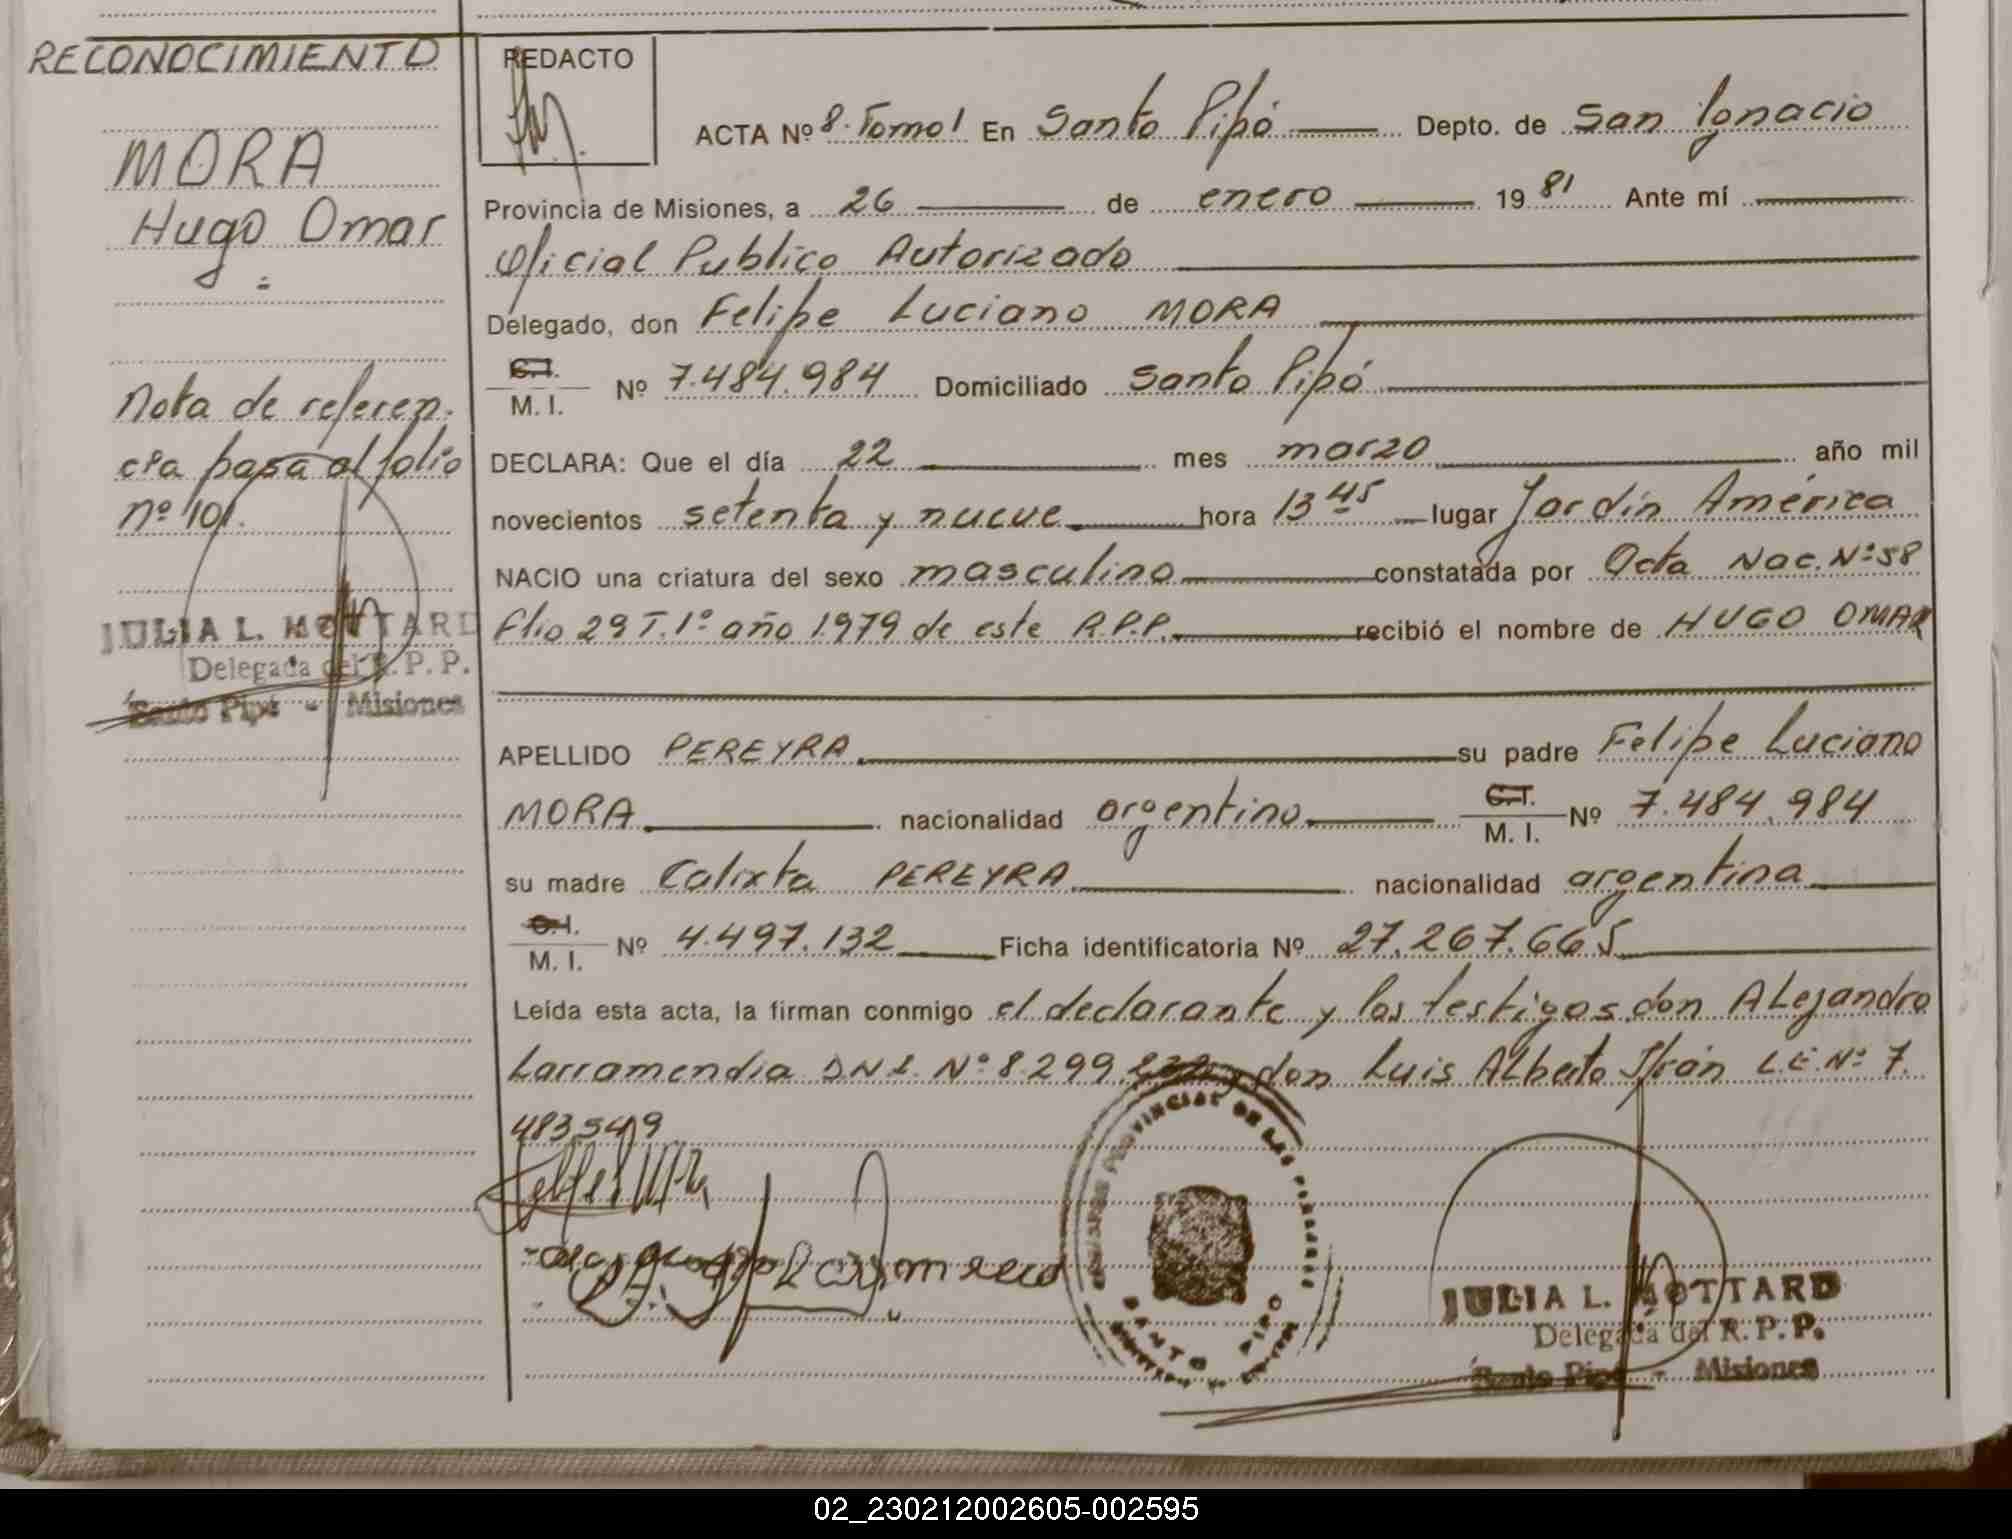 RECONOCIMIENTO
MORA
Hugo Omar
Nota de referen.
cia pasa al folio
nº 101.
JULIA L. MOTTARD
Delegada del R. P. P.
Santo Pipó - Misiones
REDACTO
ACTA Nº 8. Tomo 1 En Santo Pipó Depto. de San Ignacio
Provincia de Misiones, a 26 de enero 19 81 Ante mí
Oficial Publico Autorizado
Delegado, don Felipe Luciano MORA
C.I.
M. I. Nº 7.484.984 Domiciliado Santo Pipó
DECLARA: Que el día 22 mes marzo año mil
novecientos setenta y nueve hora 13 45 lugar Jardín América
NACIO una criatura del sexo masculino constatada por Acta Nac. Nº 58
flio 29 T. 1º año 1979 de este R.P.P. recibió el nombre de HUGO OMAR
APELLIDO PEREYRA su padre Felipe Luciano
MORA nacionalidad argentino C.I. M. I. Nº 7.484.984
su madre Calixta PEREYRA nacionalidad argentina
C.I.
M. I. Nº 4.497.132 Ficha identificatoria Nº 27.267.665
Leída esta acta, la firman conmigo el declarante y los testigos don Alejandro
Larramendia D.N.I. Nº 8.299 don Luis Alberto L.E. Nº 7.
483549
SANTO PIPO
JULIA L. MOTTARD
Delegada del R. P. P.
Santo Pipó - Misiones
02_230212002605-002595